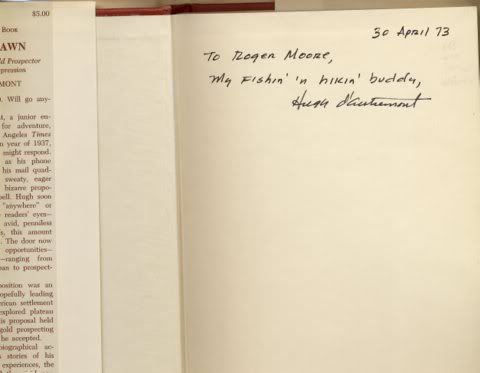 $5.00
Book
AWN
ld Prospector
pression
MONT
). Will go any-
t, a junior en-
for adventure,
Angeles Times
n year of 1937,
might respond.
as his phone
his mail quad-
sweaty, eager
bizarre propo-
bell. Hugh soon
"anywhere" or
readers' eyes—
avid, penniless
s, this amount
. The door now
opportunities—
—ranging from
ban to prospect-
position was an
opefully leading
erican settlement
explored plateau
is proposal held
gold prospecting
be accepted.
biographical ac-
s stories of his
experiences, the
30 April 73
To Roger Moore,
My Fishin' 'n hikin' buddy,
Hugh d'Autremont